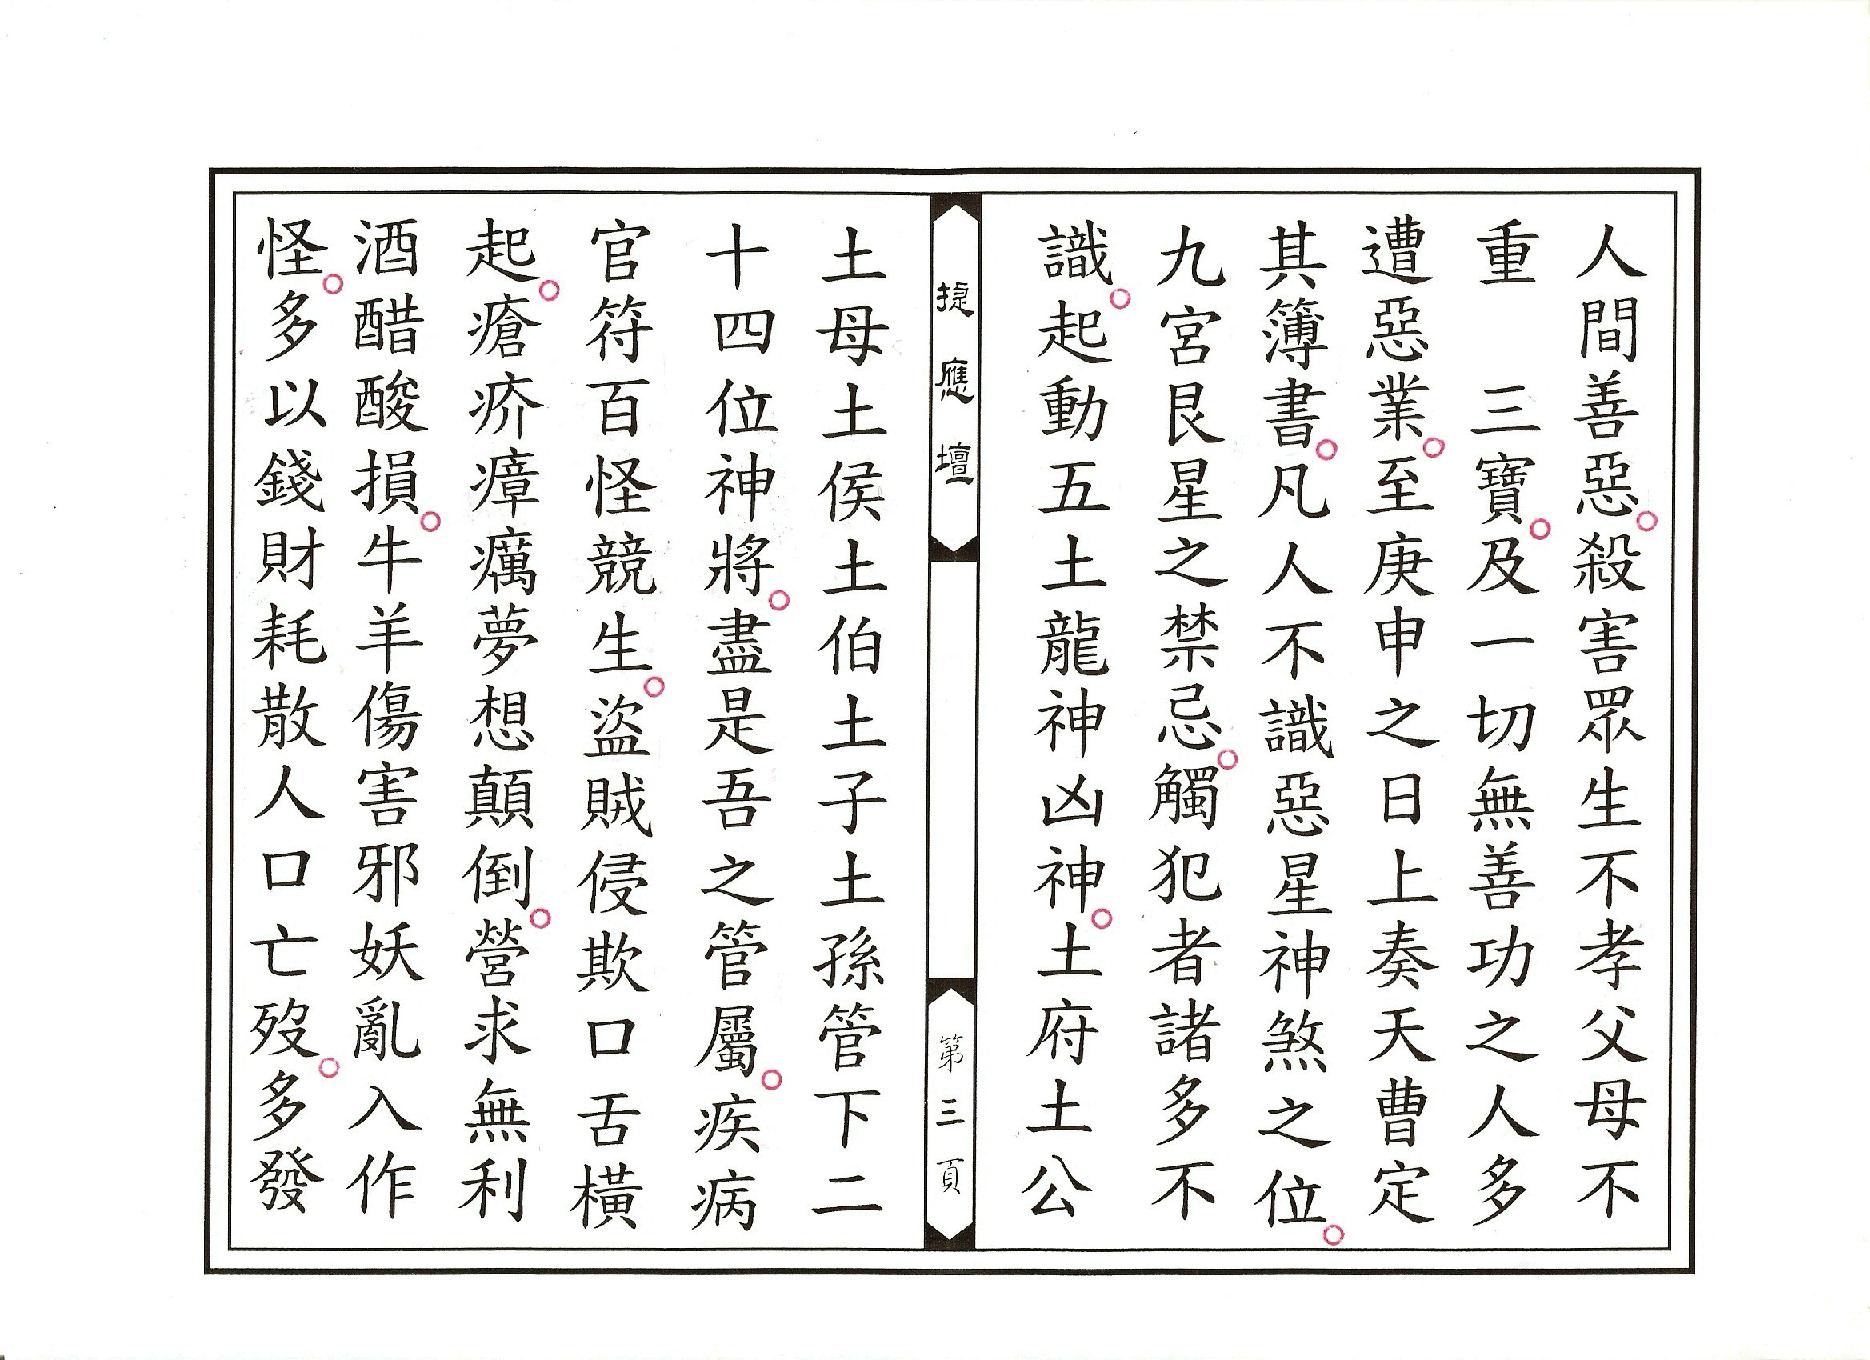 人間善惡。殺害眾生不孝父母不
重　三寶。及一切無善功之人多
遭惡業。至庚申之日上奏天曹定
其簿書。凡人不識惡星神煞之位。
九宮艮星之禁忌。觸犯者諸多不
識。起動五土龍神凶神。土府土公
捷應壇
第三頁
土母土侯土伯土子土孫管下二
十四位神將。盡是吾之管屬。疾病
官符百怪競生。盜賊侵欺口舌橫
起。瘡疥瘴癘夢想顛倒。營求無利
酒醋酸損。牛羊傷害邪妖亂入作
怪。多以錢財耗散人口亡歿。多發